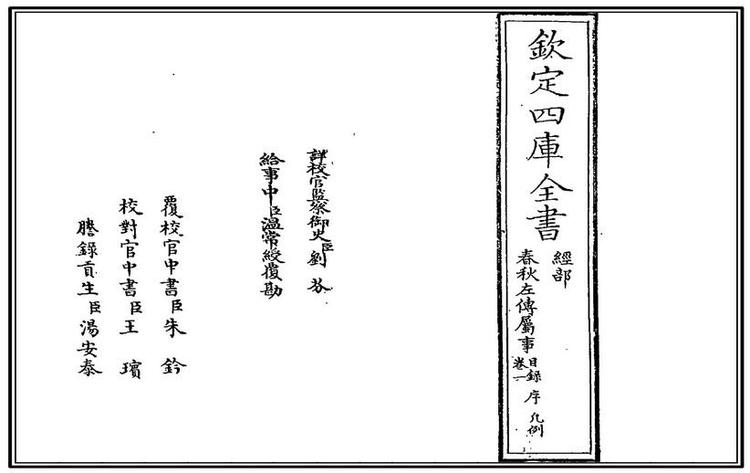 欽定四庫全書
經部
春秋左傳屬事目錄卷一序凡例
詳校官監察御史臣劉芬
給事中臣溫常綬覆勘
覆校官中書臣朱鈐
校對官中書臣王璸
謄錄貢生臣湯安泰